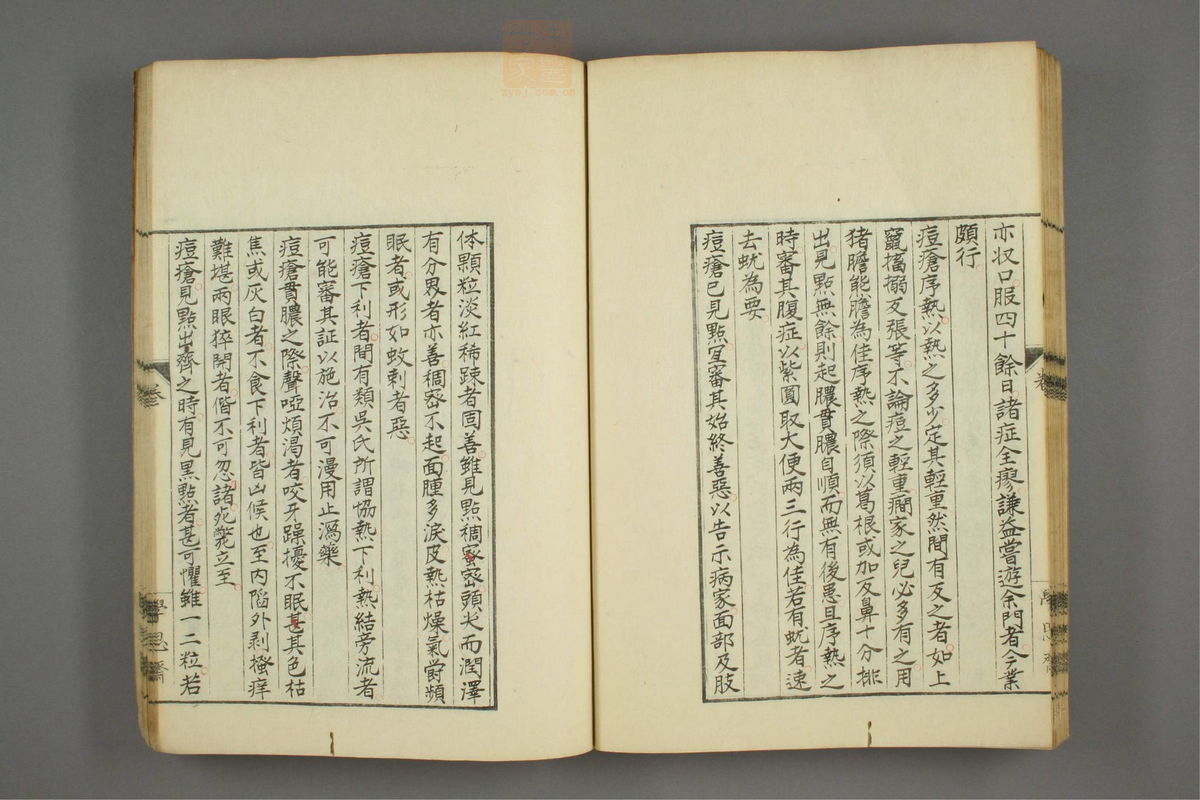 亦収口服四十餘日諸症全瘳謙益嘗遊余門者今業
頗行
痘瘡序熱以熱之多少定其輕重然間有反之者如上
竄搐搦反張等不論痘之輕重癇家之兒必多有之用
猪膽熊膽為佳序熱之際須以葛根或加反鼻十分排
出見點無餘則起膿貫膿自順而無有後患且序熱之
時審其腹症以紫圓取大便兩三行為佳若有蚘者速
去蚘為要
痘瘡已見點宜審其始終善惡以告示病家面部及肢
体顆粒淡紅稀踈者固善雖見點稠密頭尖而潤澤
有分界者亦善稠密不起面腫多淚皮熱枯燥氣欝頻
眠者或形如蚊刺者惡
痘瘡下利者間有類吳氏所謂協熱下利熱結旁流者
可能審其証以施治不可漫用止瀉藥
痘瘡貫膿之際聲啞煩渴者咬牙躁擾不眠甚其色枯
焦或灰白者不食下利者皆凶候也至内陷外剥搔痒
難堪兩眼猝開者偕不可忍諸死斃立至
痘瘡見點出齊之時有見黑點者甚可懼雖一二粒若
卷
學思齋
zysj.com.cn